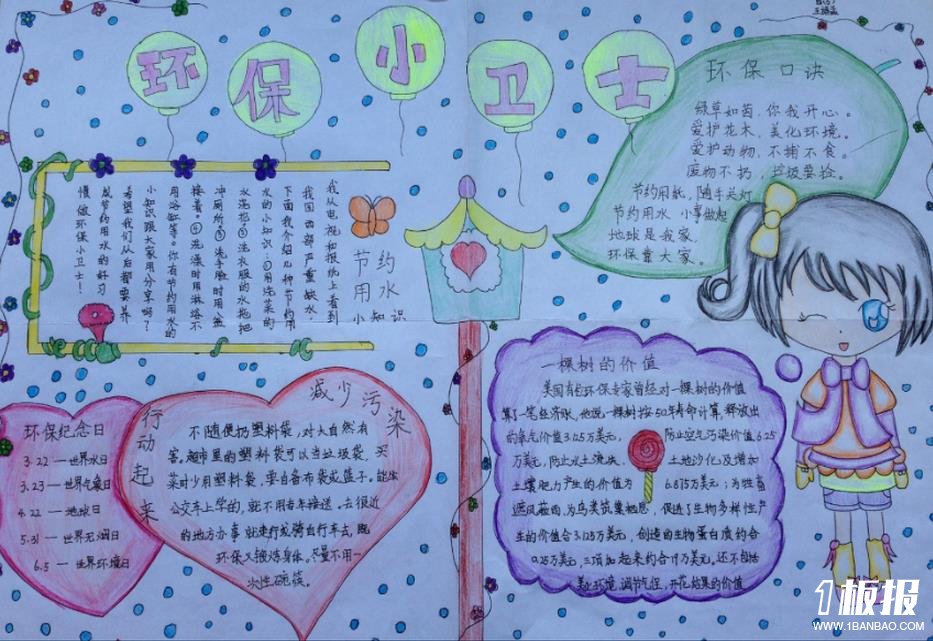 环保小卫士
环保口诀
绿草如茵，你我开心。
爱护花木，美化环境。
爱护动物，不捕不食。
废物不扔，垃圾要捡。
节约用纸，随手关灯
节约用水 小事做起
地球是我家，
环保靠大家。
节约
用水
小知识
我从电视和报纸上看到
我国西部严重缺水，
下面我介绍几种节约用
水的小知识：①用洗菜的
水洗拖②洗衣服的水拖把
冲厕所③洗手脸时用盆
接着。④洗澡时用淋浴不
用浴缸等。你有节约用水的
小知识跟大家用分享吗？
希望我们从后都要养
成节约用水的好习
惯，做环保小卫士！
环保纪念日
3.22—世界水日
3.23—世界气象日
4.22—地球日
5.31—世界无烟日
6.5—世界环境日
行动起来
减少污染
不随便扔塑料袋，对大自然有
害。超市里的塑料袋可以当垃圾袋，买
菜时少用塑料袋，要自备布袋或篮子。能坐
公交车上学的，就不用爸妈接送，去很近
的地方办事就走行或骑自行车去，既
环保又锻炼身体。尽量不用一
次性碗筷。
一棵树的价值
美国有些环保专家曾经对一棵树的价值
算了一笔经济账。他说，一棵树按50年寿命计算，释放出
的氧气价值3.125万美元，防止空气污染价值6.25
万美元，防止水土流失、土地沙化及增加
土壤肥力产生的价值为6.875万美元；为牲畜
遮风蔽雨，为鸟类筑巢栖息，促进了生物多样性产
生的价值合3.125万美元，创造的生物蛋白质约合
0.25万美元，三项加起来约合19万美元，还不包括
美化环境，调节气候，开花结果的价值
1板报
WWW.1BANBAO.COM